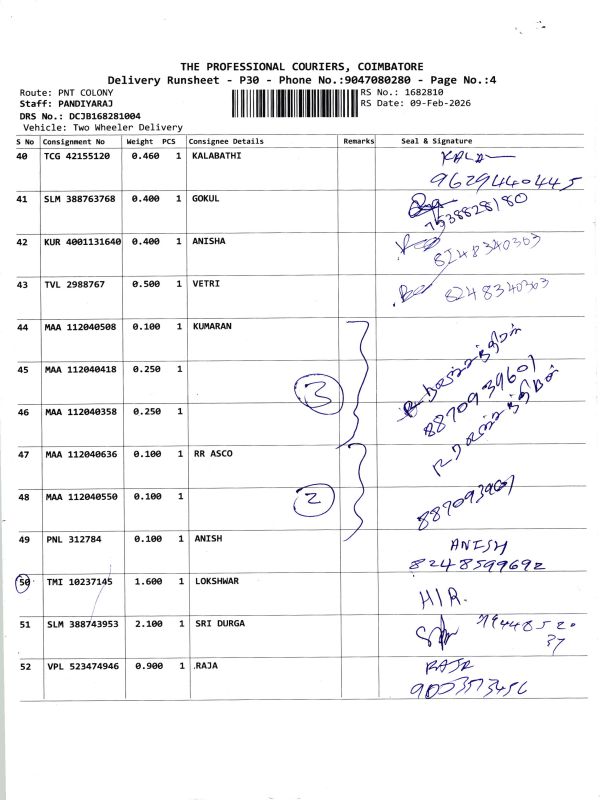 THE PROFESSIONAL COURIERS, COIMBATORE
Delivery Runsheet - P30 - Phone No.:9047080280 - Page No.:4
Route: PNT COLONY RS No.: 1682810
Staff: PANDIYARAJ RS Date: 09-Feb-2026
DRS No.: DCJB168281004
Vehicle: Two Wheeler Delivery
S No Consignment No Weight PCS Consignee Details Remarks Seal & Signature
40 TCG 42155120 0.460 1 KALABATHI KALA
9629440445
41 SLM 388763768 0.400 1 GOKUL
7538828180
42 KUR 4001131640 0.400 1 ANISHA 8248340303
43 TVL 2988767 0.500 1 VETRI 8248340303
44 MAA 112040508 0.100 1 KUMARAN
45 MAA 112040418 0.250 1
3
46 MAA 112040358 0.250 1 8870939601
47 MAA 112040636 0.100 1 RR ASCO
48 MAA 112040550 0.100 1 2
49 PNL 312784 0.100 1 ANISH ANISH
8248599692
50 TMI 10237145 1.600 1 LOKSHWAR H/R.
51 SLM 388743953 2.100 1 SRI DURGA 79448520
37
52 VPL 523474946 0.900 1 .RAJA RAJA
9003573456